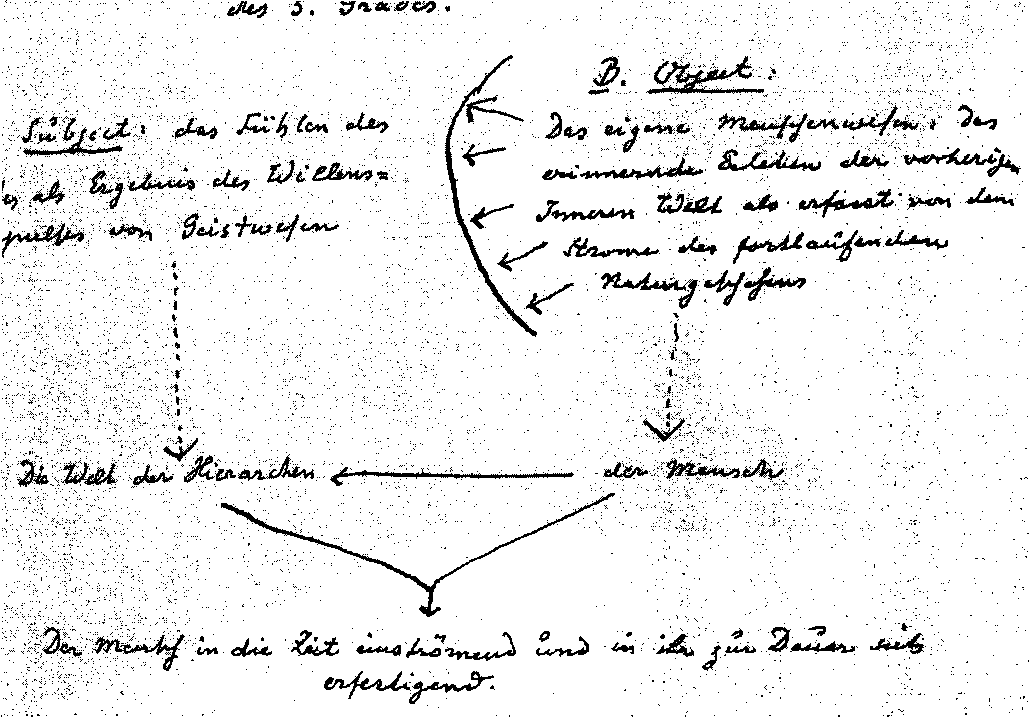 des 3. Grades.
B. Object:
Subject: das Fühlen des
als Ergebnis des Willens=
pulses von Geistwesen
Das eigene Menschenwesen: das
erinnernde Erleben der vorherigen
Inneren Welt als erfasst von dem
Strome des fortlaufenden
Naturgeschehens
Die Welt der Hierarchen
der Mensch
Der Mensch in die Zeit einströmend und in ihr zur Dauer sich
erfertigend.